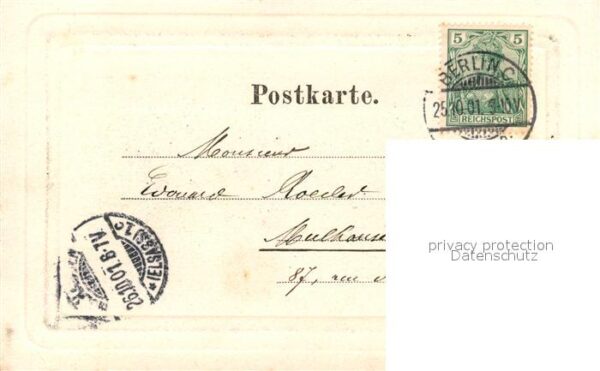 5 5
REICHSPOST
BERLIN.C.
25.10.01.9-10V.
Postkarte.
Monsieur
Edouard
Mulhouse
87, rue
(ELSASS) 1.C
26.10.01.6-7V.
privacy protection
Datenschutz